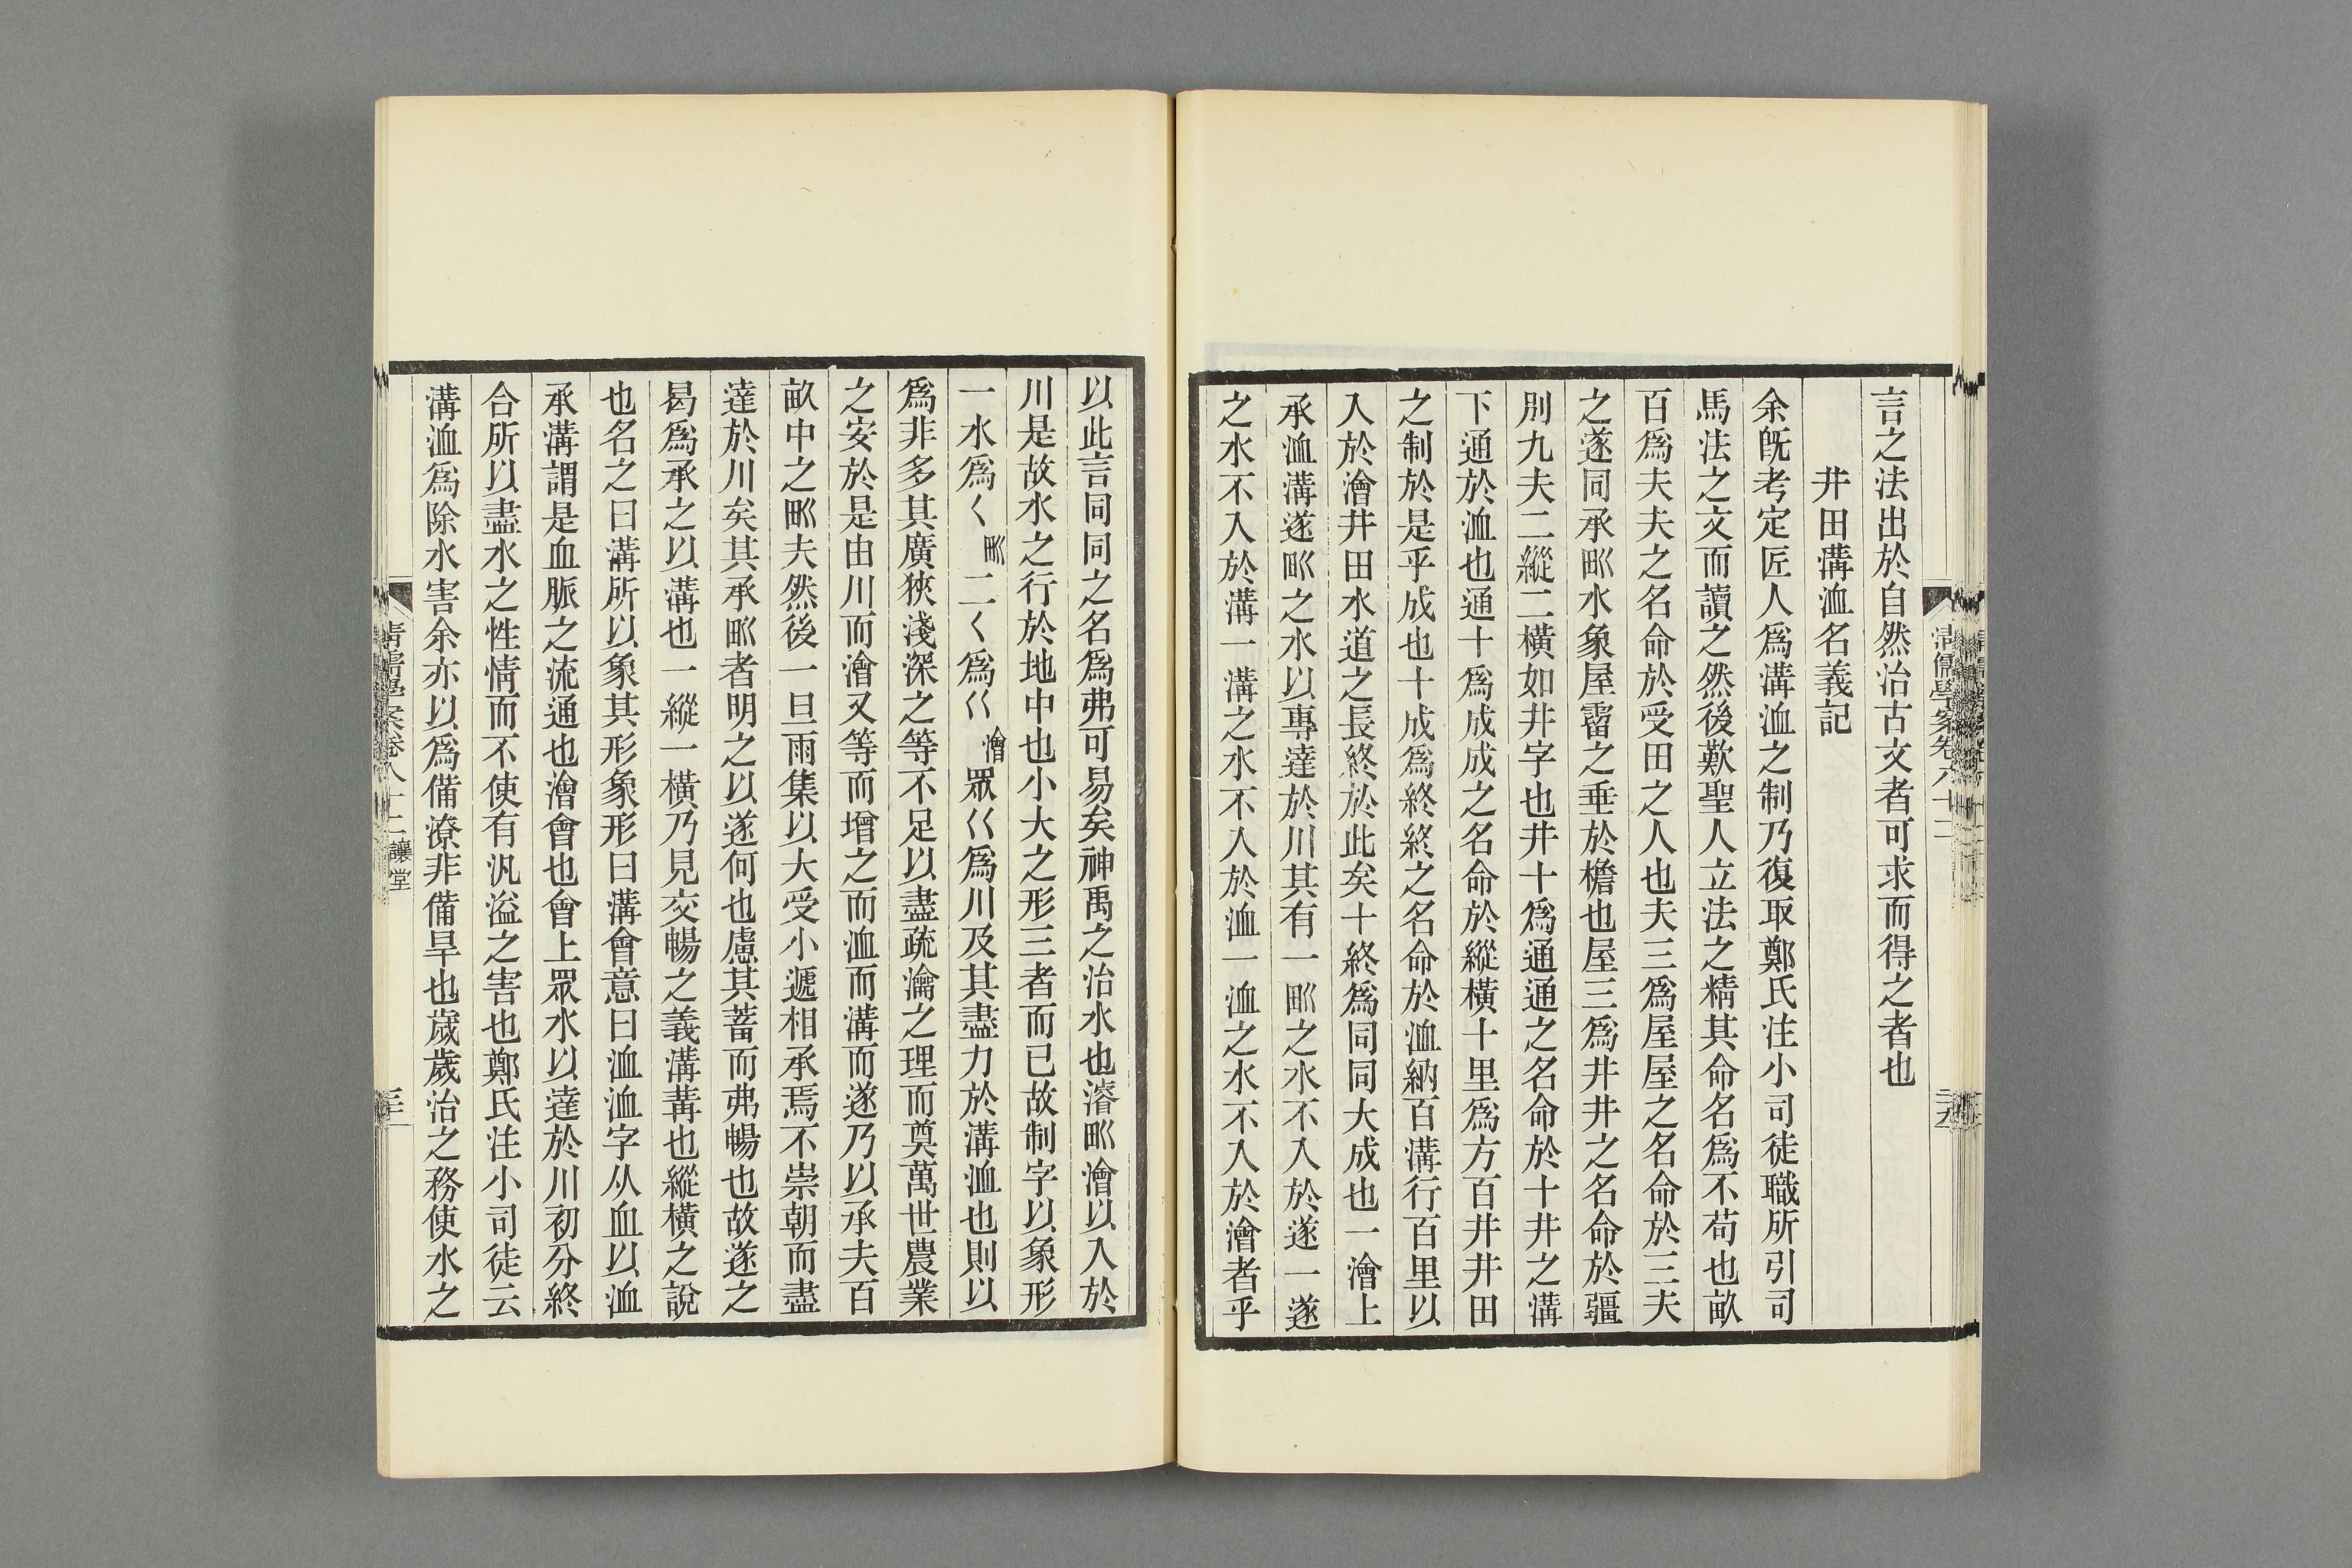 言之法出於自然治古文者可求而得之者也
井田溝洫名義記
余旣考定匠人爲溝洫之制乃復取鄭氏注小司徒職所引司
馬法之文而讀之然後歎聖人立法之精其命名爲不苟也畝
百爲夫夫之名命於受田之人也夫三爲屋屋之名命於三夫
之遂同承甽水象屋霤之垂於檐也屋三爲井井之名命於疆
別九夫二縱二橫如井字也井十爲通通之名命於十井之溝
下通於洫也通十爲成成之名命於縱橫十里爲方百井井田
之制於是乎成也十成爲終終之名命於洫納百溝行百里以
入於澮井田水道之長終於此矣十終爲同同大成也一澮上
承洫溝遂甽之水以專達於川其有一甽之水不入於遂一遂
之水不入於溝一溝之水不入於洫一洫之水不入於澮者乎
清儒學案卷八十二
以此言同同之名爲弗可易矣神禹之治水也濬甽澮以入於
川是故水之行於地中也小大之形三者而已故制字以象形
一水爲〈甽二〈爲巜澮眾巜爲川及其盡力於溝洫也則以
爲非多其廣狹淺深之等不足以盡疏瀹之理而奠萬世農業
之安於是由川而澮又等而增之而洫而溝而遂乃以承夫百
畝中之甽夫然後一旦雨集以大受小遞相承焉不崇朝而盡
達於川矣其承甽者明之以遂何也慮其蓄而弗暢也故遂之
曷爲承之以溝也一縱一橫乃見交暢之義溝冓也縱橫之說
也名之曰溝所以象其形象形曰溝會意曰洫洫字从血以洫
承溝謂是血脈之流通也澮會也會上眾水以達於川初分終
合所以盡水之性情而不使有汎溢之害也鄭氏注小司徒云
溝洫爲除水害余亦以爲備潦非備旱也歲歲治之務使水之
清儒學案卷八十二 讓堂